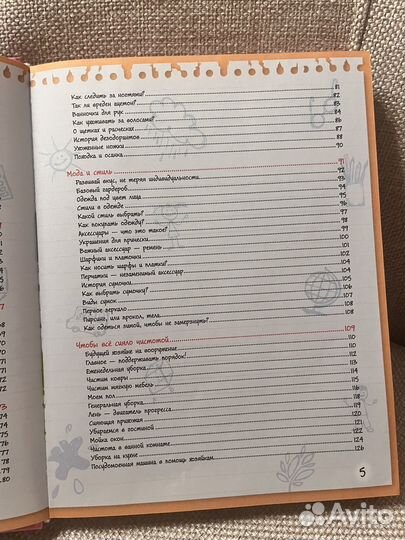 Как следить за ногтями? 81
Так ли вреден ацетон? 82
Ванночки для рук 83
Как ухаживать за волосами? 84
О щетках и расческах 86
История дезодорантов 87
Ухоженные ножки 88
Походка и осанка 90
Мода и стиль 91
Развивай вкус, не теряя индивидуальности 92
Базовый гардероб 93
Одежда под цвет лица 94
Стили в одежде 95
Какой стиль выбрать? 96
Как покупать одежду? 97
Аксессуары — что это такое? 98
Украшения для прически 99
Важный аксессуар — ремень 100
Шарфики и платочки 101
Как носить шарфы и платки? 102
Перчатки — незаменимый аксессуар 104
История сумочки 104
Как выбрать сумочку? 105
Виды сумок 106
Первое зеркало 107
Парфюм, или аромат тела 108
Как одеться зимой, чтобы не замерзнуть? 108
Чтобы всё сияло чистотой 109
Будущей хозяйке на вооружение 110
Главное — поддерживать порядок! 110
Еженедельная уборка 112
Чистим ковры 114
Чистим мягкую мебель 115
Моем пол 116
Генеральная уборка 118
Лень — двигатель прогресса 119
Сияющая прихожая 120
Убираемся в гостиной 121
Мойка окон 122
Чистота в ванной комнате 124
Уборка на кухне 126
Посудомоечная машина в помощь хозяйкам
5
Avito